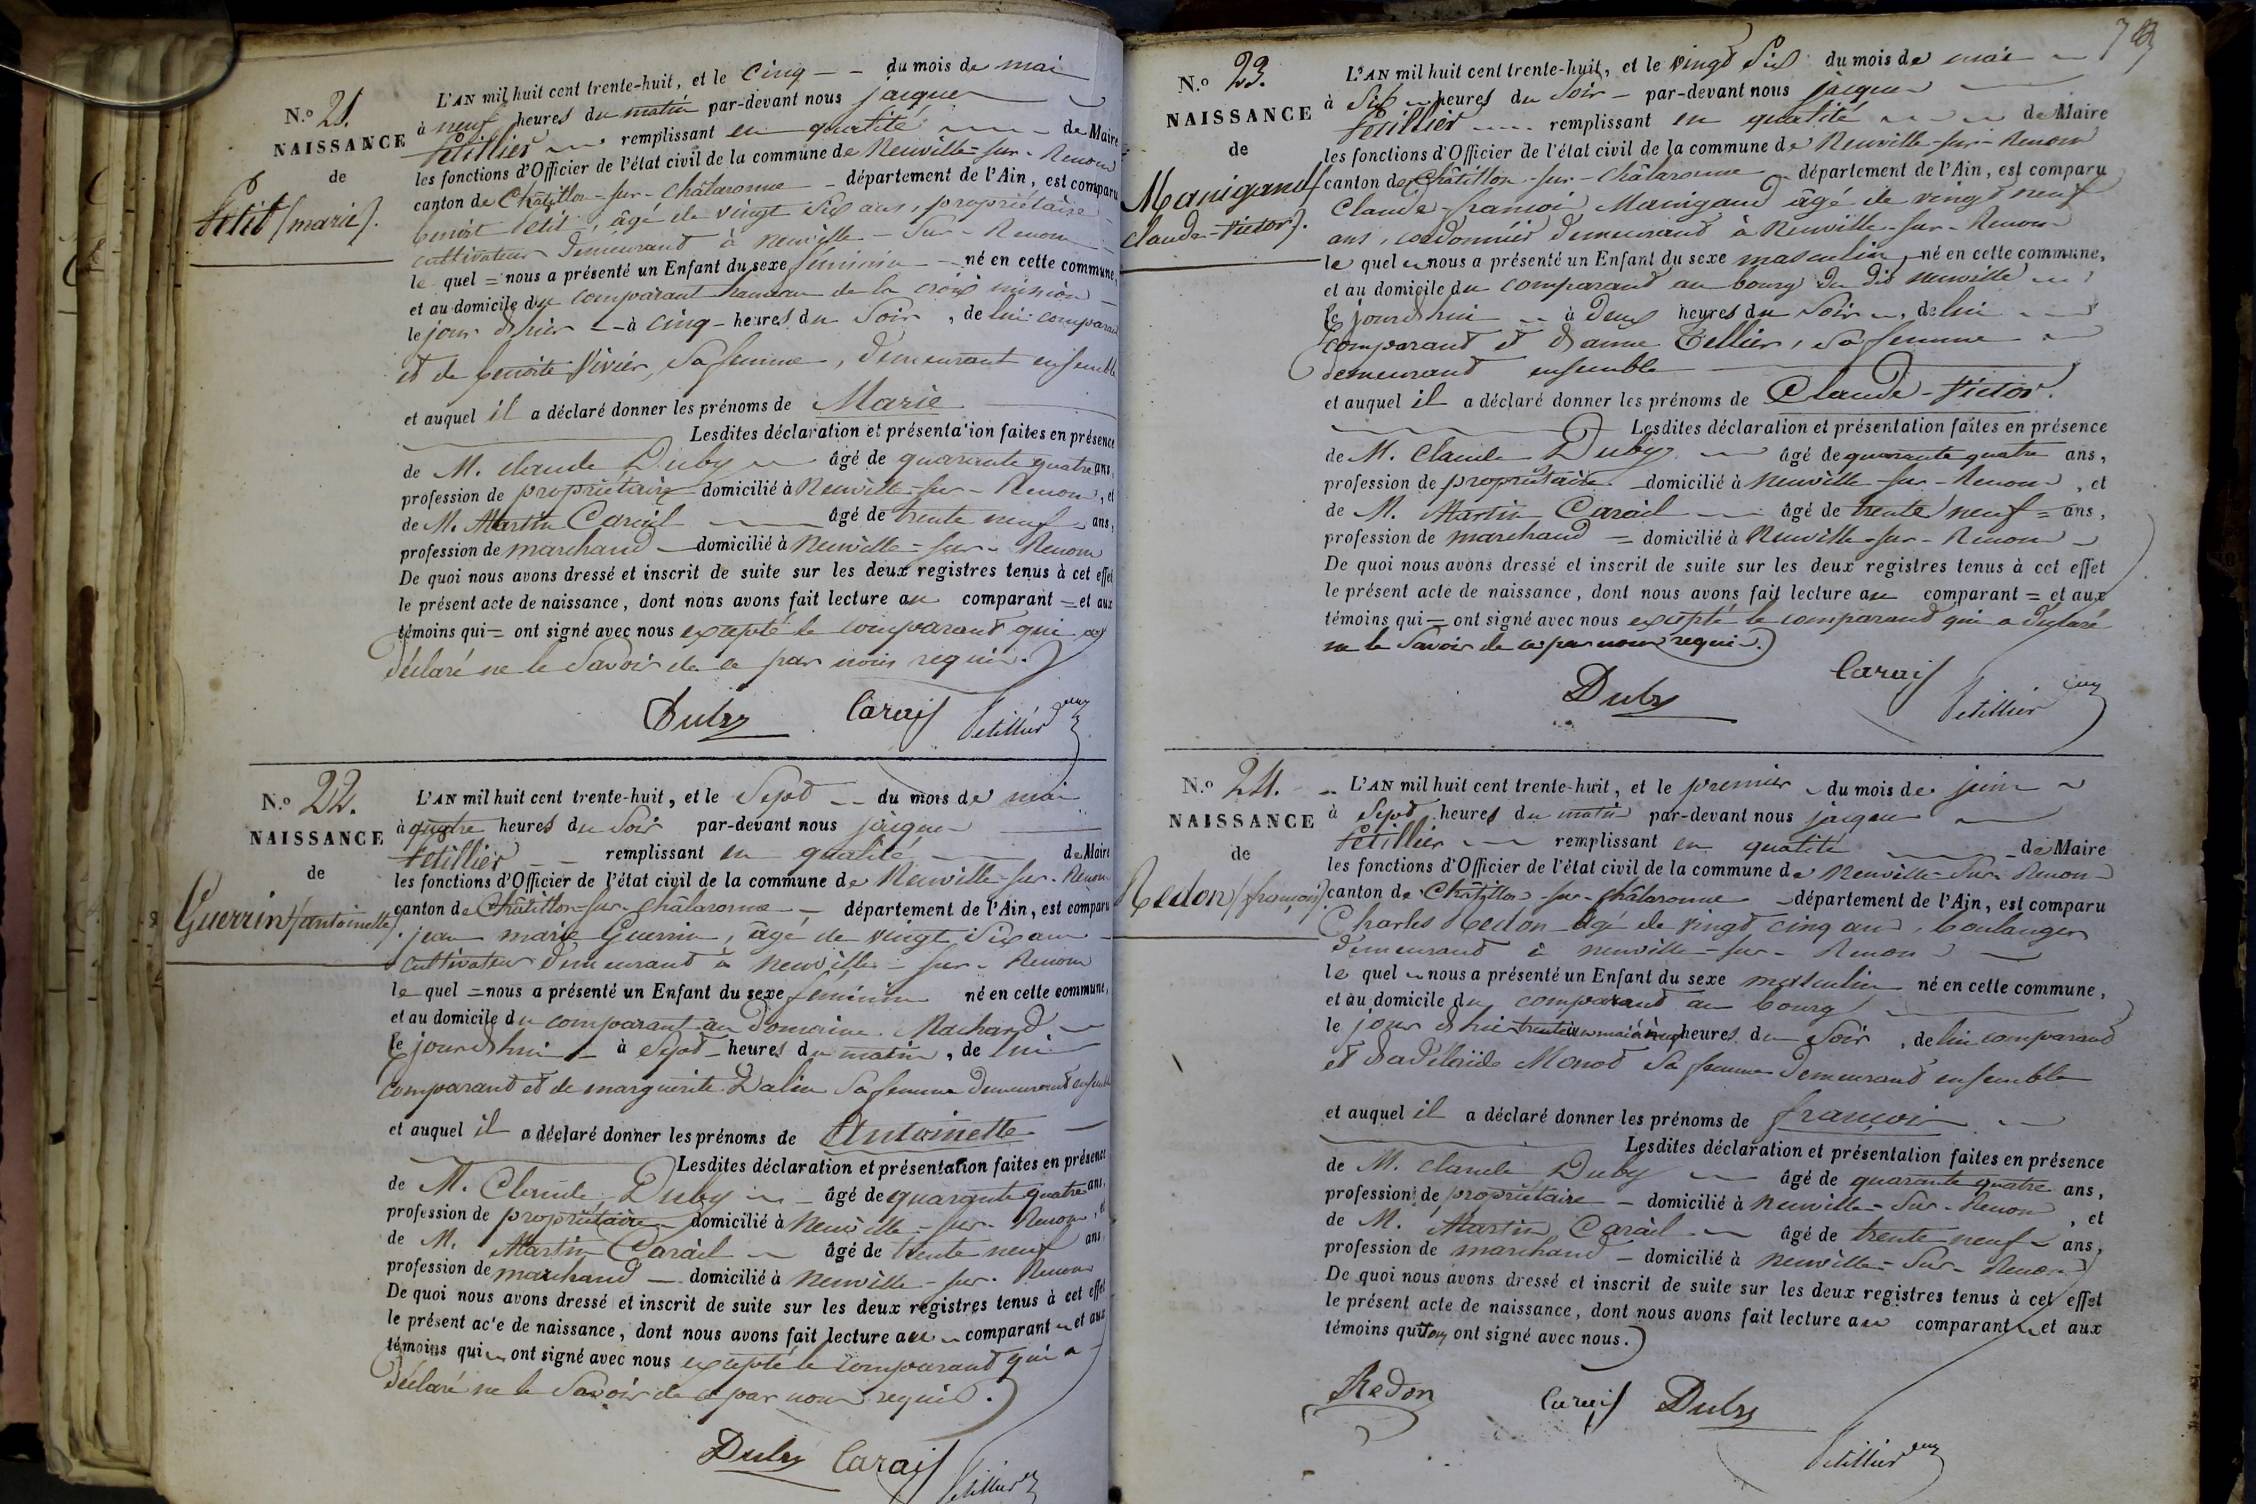 N.º 21.
NAISSANCE
de
Petit (marie).
L'AN mil huit cent trente-huit, et le cinq du mois de mai
à neuf heures du matin par-devant nous jacques
Petillier remplissant en qualité de Maire
les fonctions d'Officier de l'état civil de la commune de Neuville-sur-Renom
canton de Châtillon-sur-Châlaronne département de l'Ain, est comparu
benoit Petit, âgé de vingt six ans, propriétaire
cultivateur demeurant à Neuville-sur-Renom
le quel = nous a présenté un Enfant du sexe féminin né en cette commune,
et au domicile du comparant hameau de la croix mission
le jour d'hier à cinq heures du Soir, de lui comparant
et de benoite Vivier, sa femme, demeurant ensemble
et auquel il a déclaré donner les prénoms de Marie
Lesdites déclaration et présentation faites en présence
de M. claude Duby âgé de quarante quatre ans,
profession de propriétaire domicilié à Neuville-sur-Renom, et
de M. Martin Carail âgé de trente neuf = ans,
profession de marchand domicilié à Neuville-sur-Renom
De quoi nous avons dressé et inscrit de suite sur les deux registres tenus à cet effet
le présent acte de naissance, dont nous avons fait lecture au comparant = et aux
témoins qui = ont signé avec nous excepté le comparant qui a
déclaré ne le Savoir de ce par nous requis.
Duby Carail Petillier
N.º 22.
NAISSANCE
de
Guerrin (antoinette).
L'AN mil huit cent trente-huit, et le Sept du mois de mai
à quatre heures du Soir par-devant nous jacques
Petillier remplissant en qualité de Maire
les fonctions d'Officier de l'état civil de la commune de Neuville-sur-Renom
canton de Châtillon-sur-Châlaronne département de l'Ain, est comparu
jean marie Guerrin, âgé de vingt six ans
cultivateur demeurant à Neuville-sur-Renom
le quel = nous a présenté un Enfant du sexe féminin né en cette commune,
et au domicile du comparant au domaine Machard
le jourd'hui à Sept heures du matin, de lui
comparant et de marguerite Dalin Sa femme demeurant ensemble
et auquel il a déclaré donner les prénoms de Antoinette
Lesdites déclaration et présentation faites en présence
de M. Claude Duby âgé de quarante quatre ans,
profession de propriétaire domicilié à Neuville-sur-Renom, et
de M. Martin Carail âgé de trente neuf ans,
profession de marchand domicilié à Neuville-sur-Renom
De quoi nous avons dressé et inscrit de suite sur les deux registres tenus à cet effet
le présent acte de naissance, dont nous avons fait lecture au comparant et aux
témoins qui ont signé avec nous excepté le comparant qui a
déclaré ne le Savoir de ce par nous requis.
Duby Carail Petillier
N.º 23.
NAISSANCE
de
Manigand
claude-Victor).
L'AN mil huit cent trente-huit, et le vingt Six du mois de mai
à Six heures du Soir par-devant nous jacques
Petillier remplissant en qualité de Maire
les fonctions d'Officier de l'état civil de la commune de Neuville-sur-Renom
canton de Châtillon-sur-Châlaronne département de l'Ain, est comparu
Claude-francois Manigand âgé de vingt neuf
ans, cordonnier demeurant à Neuville-sur-Renom
le quel nous a présenté un Enfant du sexe masculin, né en cette commune,
et au domicile du comparant au bourg du dit neuville
le jourd'hui à deux heures du Soir, de lui
comparant et d'anne Tellier, sa femme
demeurant ensemble
et auquel il a déclaré donner les prénoms de Claude-Victor.
Lesdites déclaration et présentation faites en présence
de M. Claude Duby âgé de quarante quatre ans,
profession de propriétaire domicilié à Neuville-sur-Renom, et
de M. Martin Carail âgé de trente neuf = ans,
profession de marchand = domicilié à Neuville-sur-Renom
De quoi nous avons dressé et inscrit de suite sur les deux registres tenus à cet effet
le présent acte de naissance, dont nous avons fait lecture au comparant = et aux
témoins qui = ont signé avec nous excepté le comparant qui a déclaré
ne le Savoir de ce par nous requis.
Duby Carail Petillier
N.º 24.
NAISSANCE
de
Redon (françois)
L'AN mil huit cent trente-huit, et le premier du mois de juin
à Sept heures du matin par-devant nous jacques
Petillier remplissant en qualité de Maire
les fonctions d'Officier de l'état civil de la commune de Neuville-Sur-Renom
canton de Châtillon-sur-Châlaronne département de l'Ain, est comparu
Charles Redon âgé de vingt cinq ans, boulanger
demeurant à neuville-sur-Renom
le quel nous a présenté un Enfant du sexe masculin né en cette commune,
et au domicile du comparant au bourg
le jour d'hier trente un mai à heures du Soir, de lui comparant
et d'adélaïde Monod Sa femme demeurant ensemble
et auquel il a déclaré donner les prénoms de francois
Lesdites déclaration et présentation faites en présence
de M. claude Duby âgé de quarante quatre ans,
profession de propriétaire domicilié à Neuville-Sur-Renom, et
de M. Martin Carail âgé de trente neuf ans,
profession de marchand domicilié à Neuville-Sur-Renom
De quoi nous avons dressé et inscrit de suite sur les deux registres tenus à cet effet
le présent acte de naissance, dont nous avons fait lecture au comparant et aux
témoins qui tous ont signé avec nous.
Redon Carail Duby
Petillier